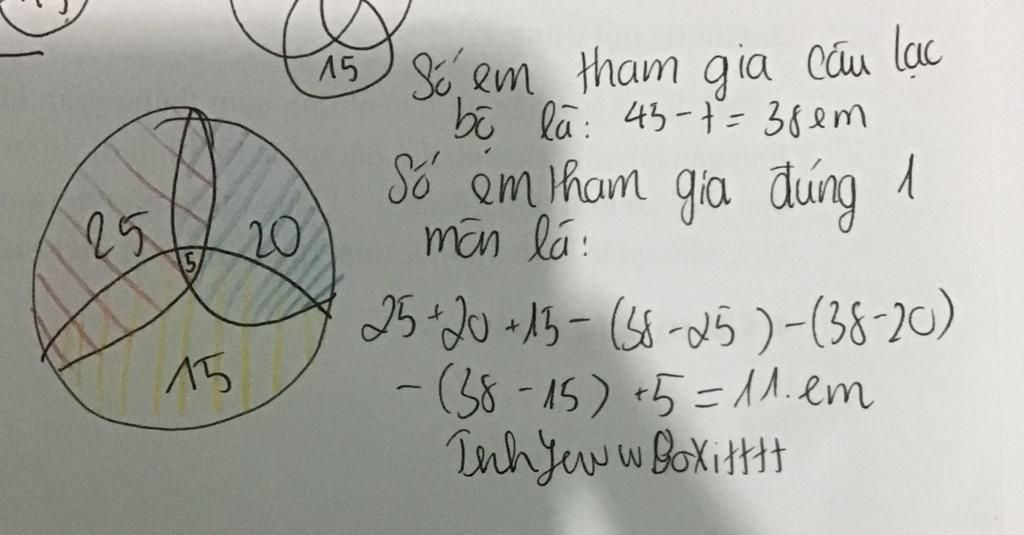 15
Số em tham gia câu lạc
bộ là: 45-7 = 38 em
Số em tham gia đúng 1
môn là:
25 20
5
15
25+20+15-(38-25)-(38-20)
-(38-15)+5=11.em